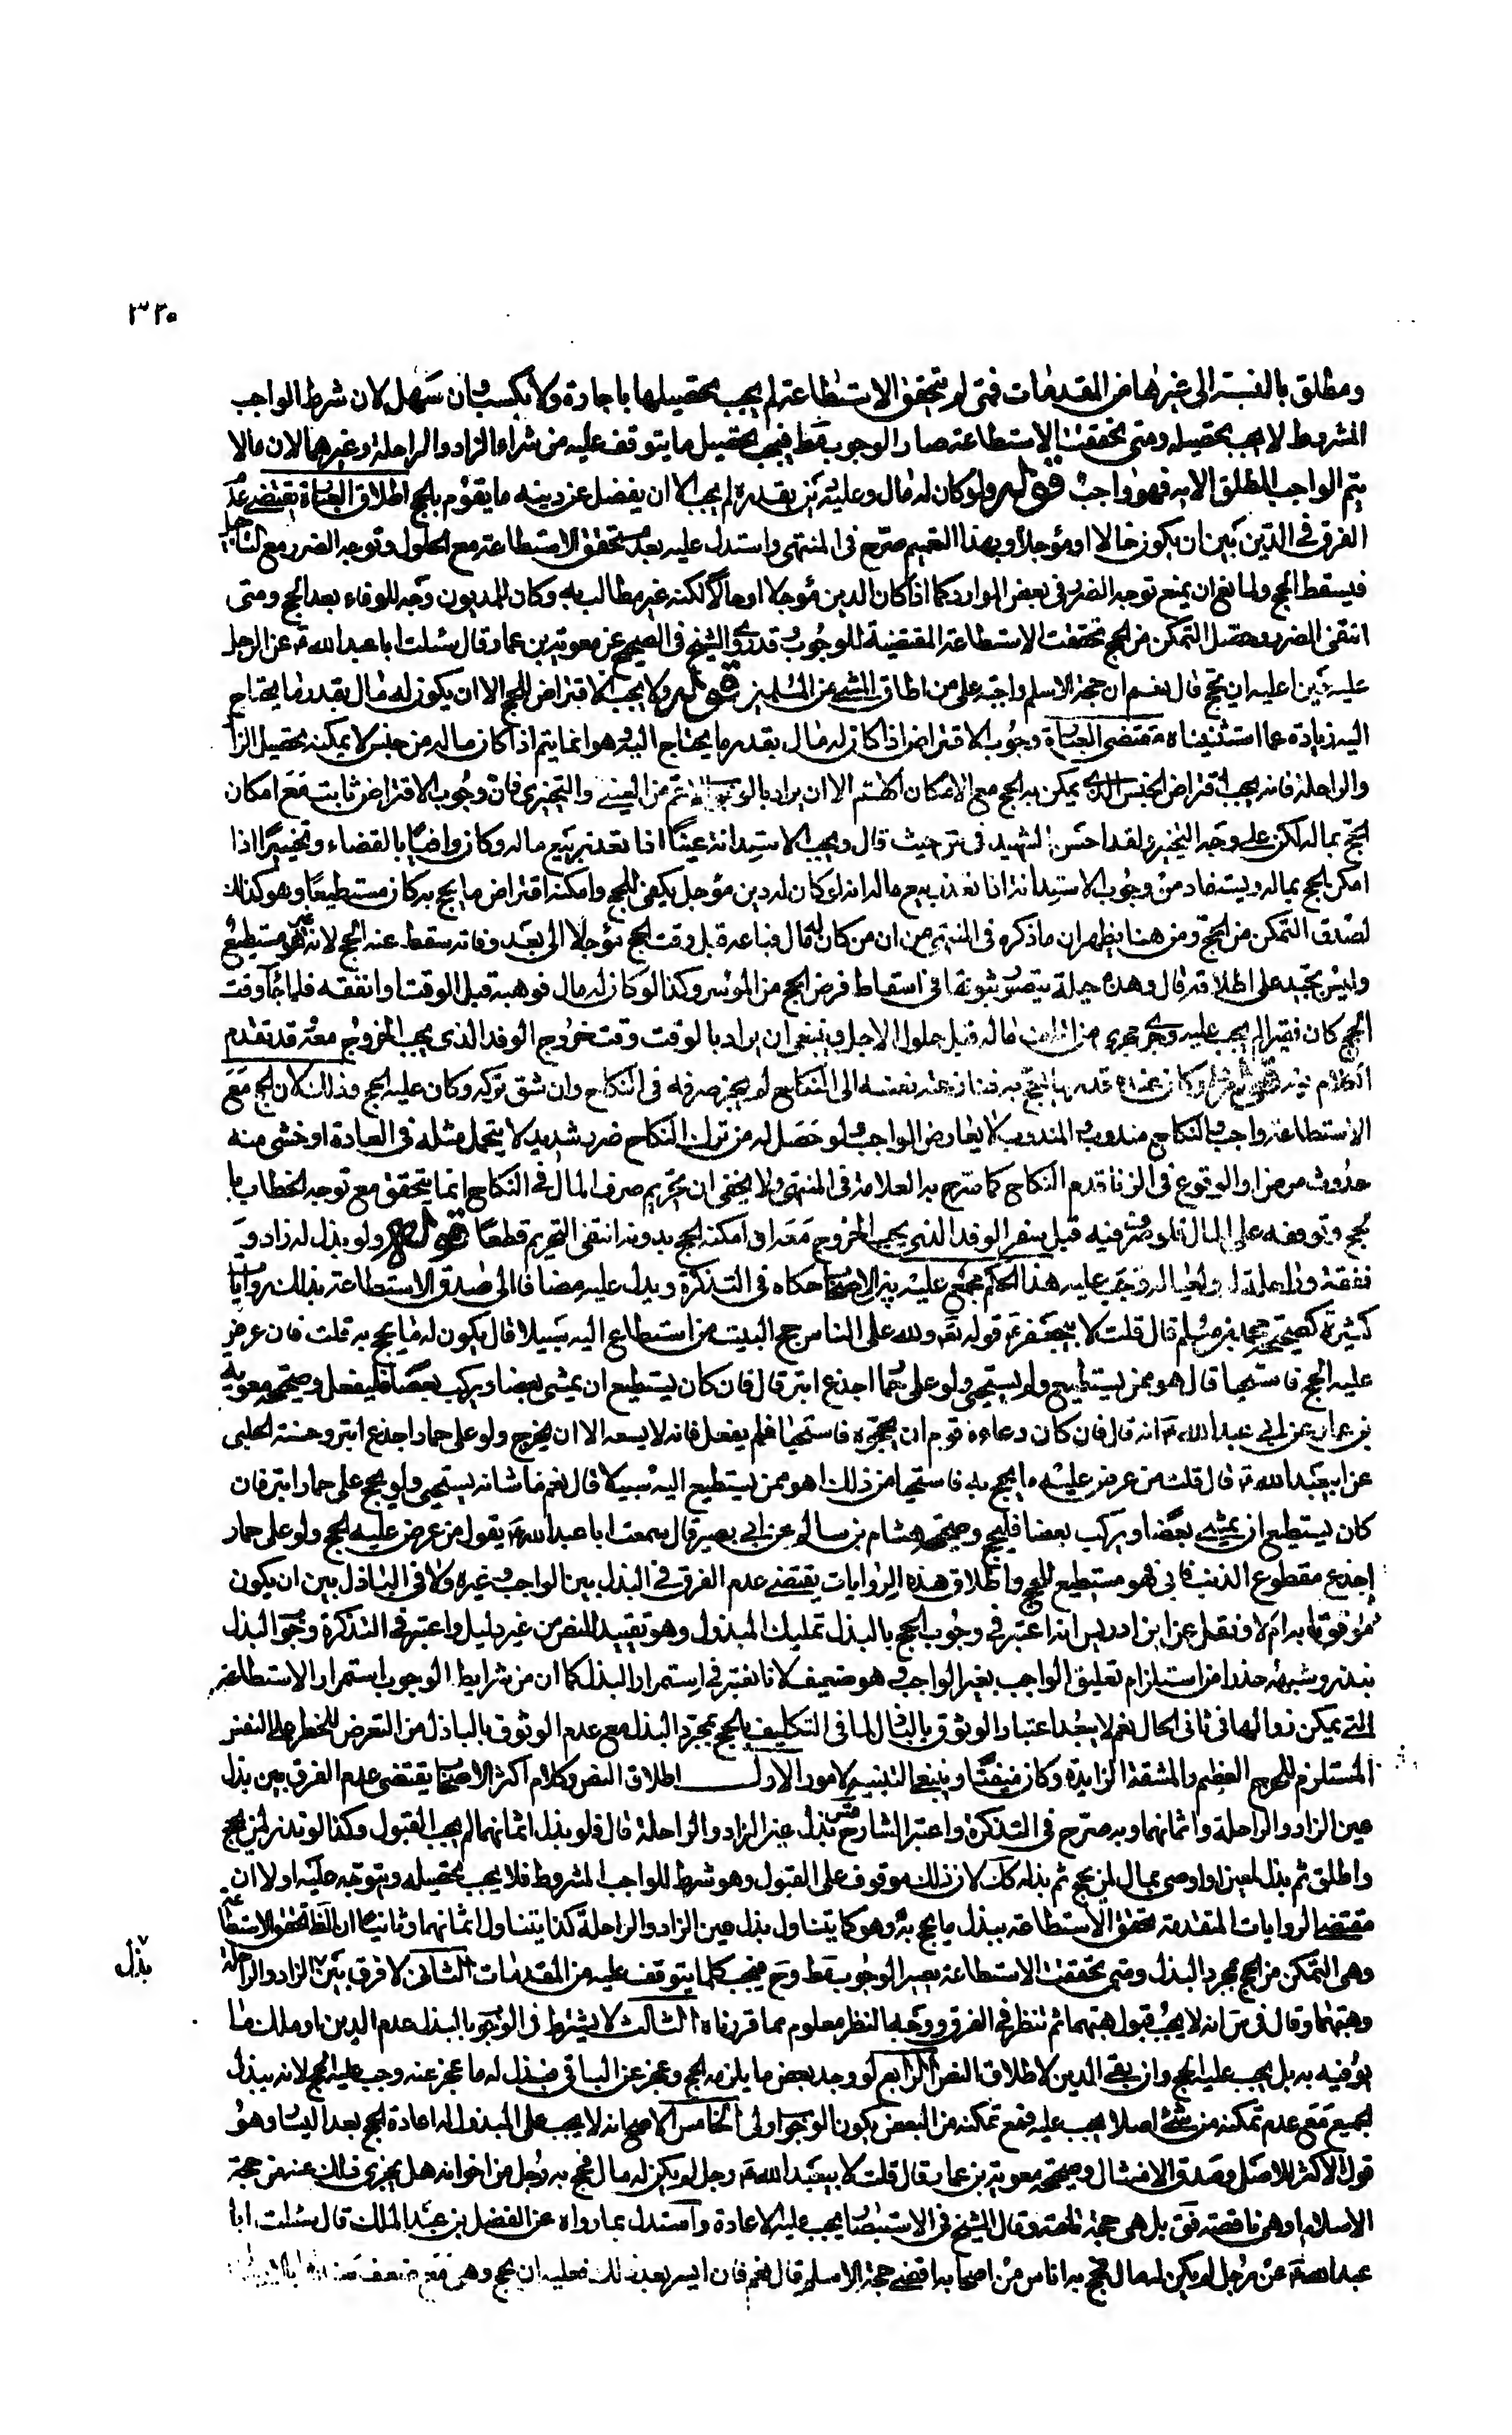 ٣٢٠
ومطلق بالنسبة الى غيرها من المقدمات فمتى لم يتحقق الاستطاعة لم يجب تحصيلها باجارة ولا تكسب وان سهل لان شرط الواجب
المشروط لا يجب تحصيله ومتى تحققت الاستطاعة صار الوجوب مط فيجب تحصيل ما يتوقف عليه من شراء الزاد والراحلة وغيرهما لان ما لا
يتم الواجب المطلق الا به فهو واجب قوله ولو كان له مال وعليه دين بقدره لم يجب الا ان يفضل عن دينه ما يقوم بالحج اطلاق العبارة يقتضى عدم
الفرق في الدين بين ان يكون حالا او مؤجلا وبهذا التعميم صرح في المنتهى واستدل عليه بعدم تحقق الاستطاعة مع الحلول وتوجه الضرر مع التاجيل
فيسقط الحج ولمانع ان يمنع توجه الضرر في بعض الموارد كما اذا كان الدين مؤجلا او حالا لكنه غير مطالب به وكان للمديون وجه للوفاء بعد الحج ومتى
انتفى الضرر وحصل التمكن من الحج تحققت الاستطاعة المقتضية للوجوب وقد روى الشيخ في الصحيح عن معوية بن عمار قال سئلت ابا عبد الله ع عن الرجل
عليه دين اعليه ان يحج قال نعم ان حجة الاسلم واجبة على من اطاق المشى من المسلمين قوله ولا يجب الاقتراض للحج الا ان يكون له مال بقدر ما يحتاج
اليه زيادة عما استثنيناه مقتضى العبارة وجوب الاقتراض اذا كان له مال بقدر ما يحتاج اليه وهو انما يتم اذا كان ماله من جنس لا يمكنه تحصيل الزاد
والراحلة فانه يجب اقتراض الجنس الذى يمكن به الحج مع الامكان اللهم الا ان يراد بالوجوب الاعم من العينى والتخييرى فان وجوب الاقتراض ثابت مع امكان
الحج بماله لكن على وجه التخيير ولقد احسن الشهيد في س حيث قال ويجب الاستدانة عينا اذا تعذر بيع ماله وكان وافيا بالقضاء وتخييرا اذا
امكن الحج بماله ويستفاد من وجوب الاستدانة اذا تعذر بيع ماله انه لو كان له دين مؤجل يكفى للحج وامكنه اقتراض ما يحج به كان مستطيعا وهو كذلك
لصدق التمكن من الحج ومن هنا يظهر ان ما ذكره في المنتهى من ان من كان له مال فباعه قبل وقت الحج مؤجلا الى بعد وفاته سقط عنه الحج لانه غير مستطيع
وليس بجيد على اطلاقه قال وهذه حيلة يتصور ثبوتها في اسقاط فرض الحج من الموسر وكذا لو كان له مال فوهبه قبل الوقت او انفقه فلما جآء وقت
الحج كان فقيرا لم يجب عليه وجرى مجرى من اتلف ماله قبل حلول الاجل وينبغى ان يراد بالوقت وقت خروج الوفد الذى يجب الخروج معه وقد تقدم
الكلام فيه قوله ولو كان عنده قدر ما يحج به فنازعته نفسه الى النكاح لم يجز صرفه في النكاح وان شق تركه وكان عليه الحج وذلك لان الحج مع
الاستطاعة واجب والنكاح مندوب والمندوب لا يعارض الواجب ولو حصل له من ترك النكاح ضرر شديد لا يتحمل مثله في العادة او خشى منه
حدوث مرض او الوقوع في الزنا قدم النكاح كما صرح به العلامة في المنتهى ولا يخفى ان تحريم صرف المال في النكاح انما يتحقق مع توجه الخطاب بالحج
وتوقفه على المال فلو صرفه فيه قبل سفر الوفد الذى يجب الخروج معه او امكنه الحج بدونه انتفى التحريم قطعا قوله ولو بذل له زاد و
نفقة وراحلة له ولعياله وجب عليه هذا الحكم مجمع عليه بين الاصحاب حكاه في التذكرة ويدل عليه مضافا الى صدق الاستطاعة بذلك روايات
كثيرة كصحيحة محمد بن مسلم قال قلت لابيجعفر ع قوله تع ولله على الناس حج البيت من استطاع اليه سبيلا قال يكون له ما يحج به قلت فان عرض
عليه الحج فاستحيا قال هو ممن يستطيع ولم يستحيى ولو على حمار اجذع ابتر قال فان كان يستطيع ان يمشى بعضا ويركب بعضا فليفعل وصحيحة معوية
بن عمار عن ابى عبد الله ع انه قال فان كان دعاه قوم ان يحجوه فاستحيا فلم يفعل فانه لا يسعه الا ان يخرج ولو على حمار اجذع ابتر وحسنة الحلبى
عن ابيعبد الله ع قال قلت من عرض عليه ما يحج به فاستحيا من ذلك اهو ممن يستطيع اليه سبيلا قال نعم ما شانه يستحيى ولو يحج على حمار ابتر فان
كان يستطيع ان يمشى بعضا ويركب بعضا فليحج وصحيحة هشام بن سالم عن ابى بصير قال سمعت ابا عبد الله ع يقول من عرض عليه الحج ولو على حمار
اجذع مقطوع الذنب فابى فهو مستطيع للحج واطلاق هذه الروايات يقتضى عدم الفرق في البذل بين الواجب وغيره ولا في الباذل بين ان يكون
موثوقا به ام لا ونقل عن ابن ادريس انه اعتبر في وجوب الحج بالبذل تمليك المبذول وهو تقييد للنص من غير دليل واعتبر في التذكرة وجوب البذل
بنذر وشبهه حذرا من استلزام تعليق الواجب بغير الواجب وهو ضعيف لانا نعتبر في استمرار البذل كما ان من شرايط الوجوب استمرار الاستطاعة
التى يمكن زوالها في ثانى الحال نعم لا يبعد اعتبار الوثوق بالباذل لما في التكليف بالحج بمجرد البذل مع عدم الوثوق بالباذل من التعرض للخطر على النفس
المستلزم للحرج العظيم والمشقة الزايدة وكان منفيا وينبغى التنبيه لامور الاول اطلاق النص وكلام اكثر الاصحاب يقتضى عدم الفرق بين بذل
عين الزاد والراحلة واثمانهما وبه صرح في التذكرة واعتبر الشارح قس بذل عين الزاد والراحلة قال فلو بذل اثمانهما لم يجب القبول وكذا لو نذر لمن يحج
واطلق ثم بذل لمعين او اوصى بمال لمن يحج ثم بذله كك لان ذلك موقوف على القبول وهو شرط للواجب المشروط فلا يجب تحصيله ويتوجه عليه اولا ان
مقتضى الروايات المتقدمة تحقق الاستطاعة ببذل ما يحج به وهو كما يتناول بذل عين الزاد والراحلة كذا يتناول اثمانهما وثانيا ان الظ تحقق الاستطاعة
وهى التمكن من الحج بمجرد البذل ومتى تحققت الاستطاعة يصير الوجوب مط وح فيجب كلما يتوقف عليه من المقدمات الثانى لا فرق بين الزاد والراحلة
بذل
وهبتهما وقال في س انه لا يجب قبول هبتهما ثم تنظر في الفرق ووجه النظر معلوم مما قررناه الثالث لا يشترط في الوجوب بالبذل عدم الدين او ملك ما
يوفيه به بل يجب عليه الحج وان بقى الدين لاطلاق النص الرابع لو وجد بعض ما يلزمه للحج وعجز عن الباقى فبذل له ما عجز عنه وجب عليه الحج لانه ببذل
الجميع مع عدم تمكنه من شئ اصلا يجب عليه فمع تمكنه من البعض يكون الوجوب اولى الخامس الاصح انه لا يجب على المبذول له اعادة الحج بعد اليسار وهو
قول الاكثر للاصل وصدق الامتثال وصحيحة معوية بن عمار قال قلت لابيعبد الله ع رجل لم يكن له مال فحج به رجل من اخوانه هل يجزى ذلك عنه من حجة
الاسلام او هى ناقصة قق بل هى حجة تامة وقال الشيخ في الاستبصار يجب عليه الاعادة واستدل بما رواه عن الفضل بن عبد الملك قال سئلت ابا
عبد الله ع عن رجل لم يكن له مال فحج به اناس من اصحابه اقضى حجة الاسلم قال نعم فان ايسر بعد ذلك فعليه ان يحج وهى مع ضعف